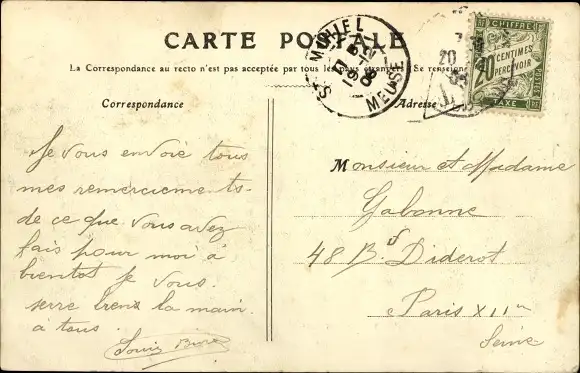 CARTE POSTALE
La Correspondance au recto n'est pas acceptée par tous les pays étrangers Se renseigner
Correspondance
Adresse
ST MIHIEL
MEUSE
CHIFFRE
20 CENTIMES
A PERCEVOIR
TAXE
POSTES
Je vous envoie tous
mes remerciements
de ce que vous avez
fais pour moi à
bientot je vous
serre bien la main
à tous.
Louis
Monsieur et Madame
Gabonne
48 B.d Diderot
Paris XII
Seine